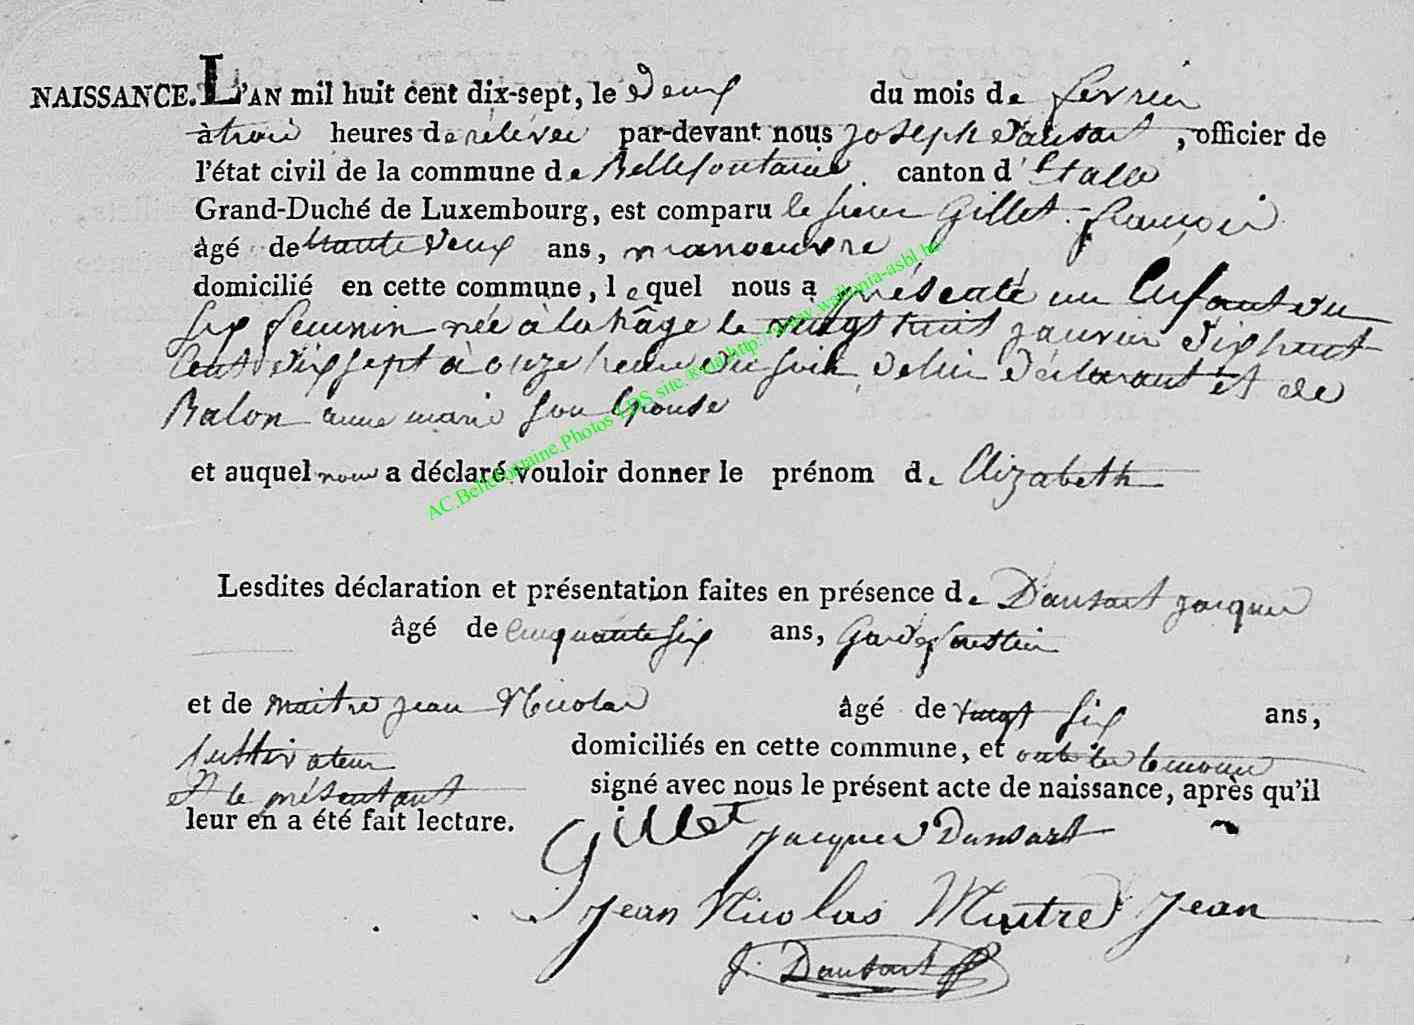 NAISSANCE. L'AN mil huit cent dix-sept, le deux du mois de fevrier
à trois heures de rélevée par-devant nous joseph dausart, officier de
l'état civil de la commune de Bellefontaine canton d'Etalle
Grand-Duché de Luxembourg, est comparu le sieur Gillet françois
âgé de trante deux ans, manoeuvre
domicilié en cette commune, lequel nous a présenté un Enfant du
six feminin née à la hâge le vingt huit janvier dix huit
Cent dix sept à onze heure du soir, de lui déclarant et de
Balon anne marie son Epouse
et auquel nous a déclaré vouloir donner le prénom de Elizabeth
Lesdites déclaration et présentation faites en présence de Dausart jacques
âgé de Cinquante six ans, Garde forestier
et de maitre jean Nicolas âgé de vingt six ans,
Cultivateur domiciliés en cette commune, et ont les temoins
et le présentant signé avec nous le présent acte de naissance, après qu'il
leur en a été fait lecture.
Gillet jacques Dansart
jean Nicolas Maitre Jean
J. Dausart
AC.Bellefontaine.Photos LDS site.Réal.http://www.wallonia-asbl.be